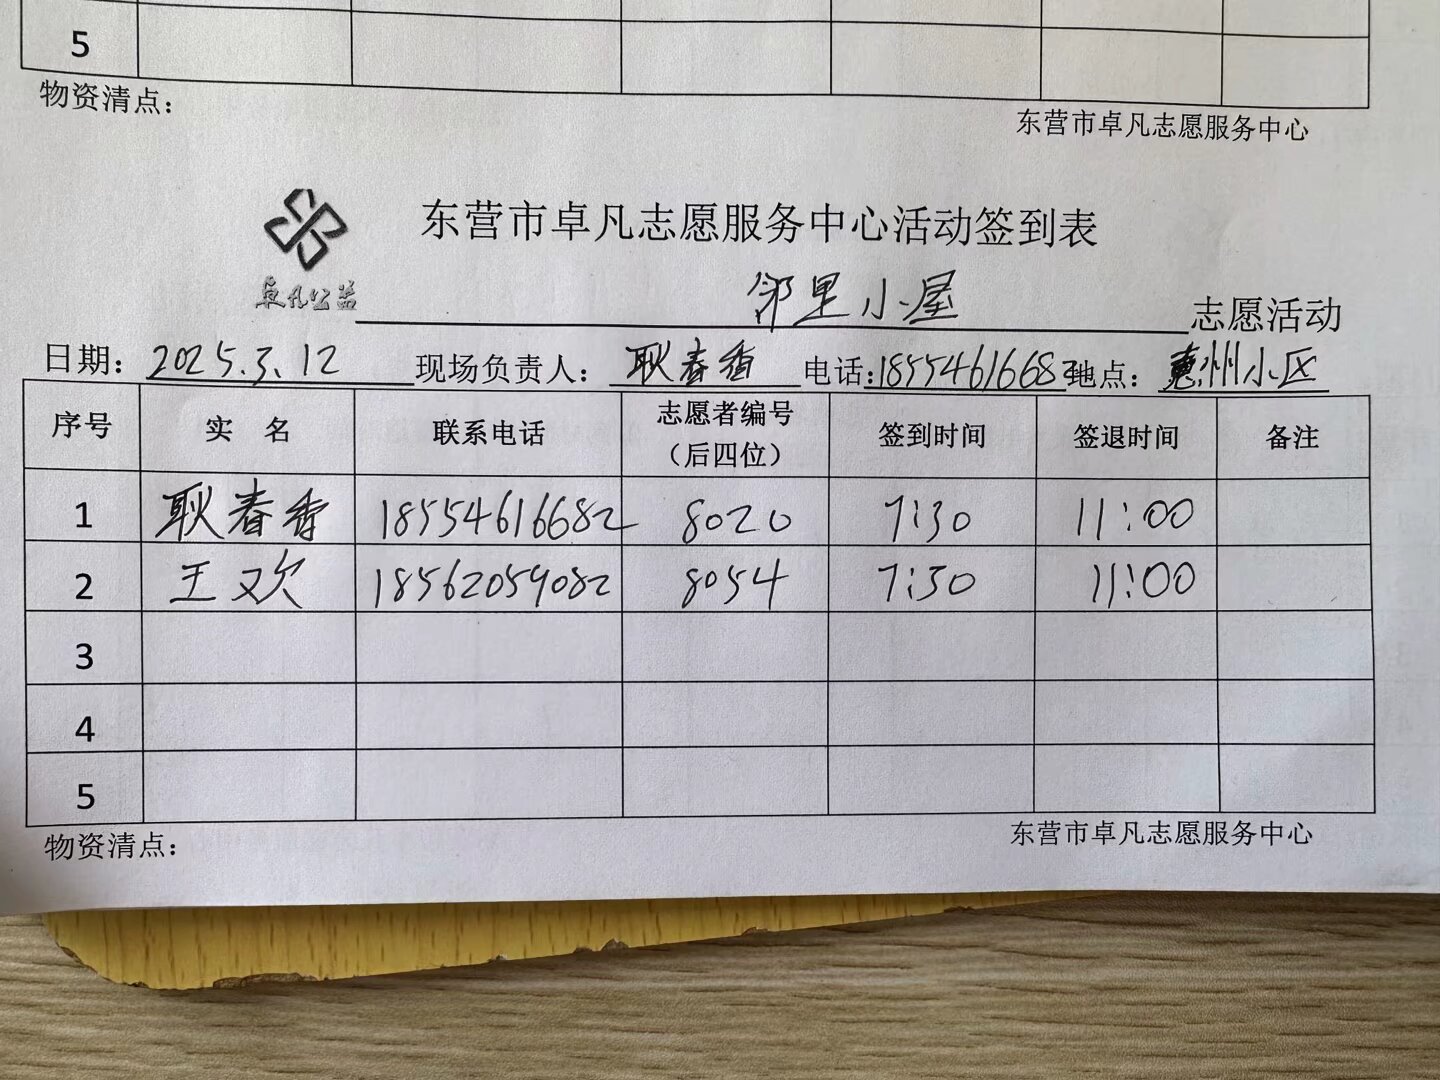 5
物资清点：
东营市卓凡志愿服务中心
卓凡公益
东营市卓凡志愿服务中心活动签到表
邻里小屋 志愿活动
日期：2025.3.12 现场负责人：耿春香 电话：18554616682 地点：惠州小区
序号 实 名 联系电话 志愿者编号（后四位） 签到时间 签退时间 备注
1 耿春香 18554616682 8020 7:30 11:00
2 王欢 18562059082 8054 7:30 11:00
3
4
5
物资清点：
东营市卓凡志愿服务中心